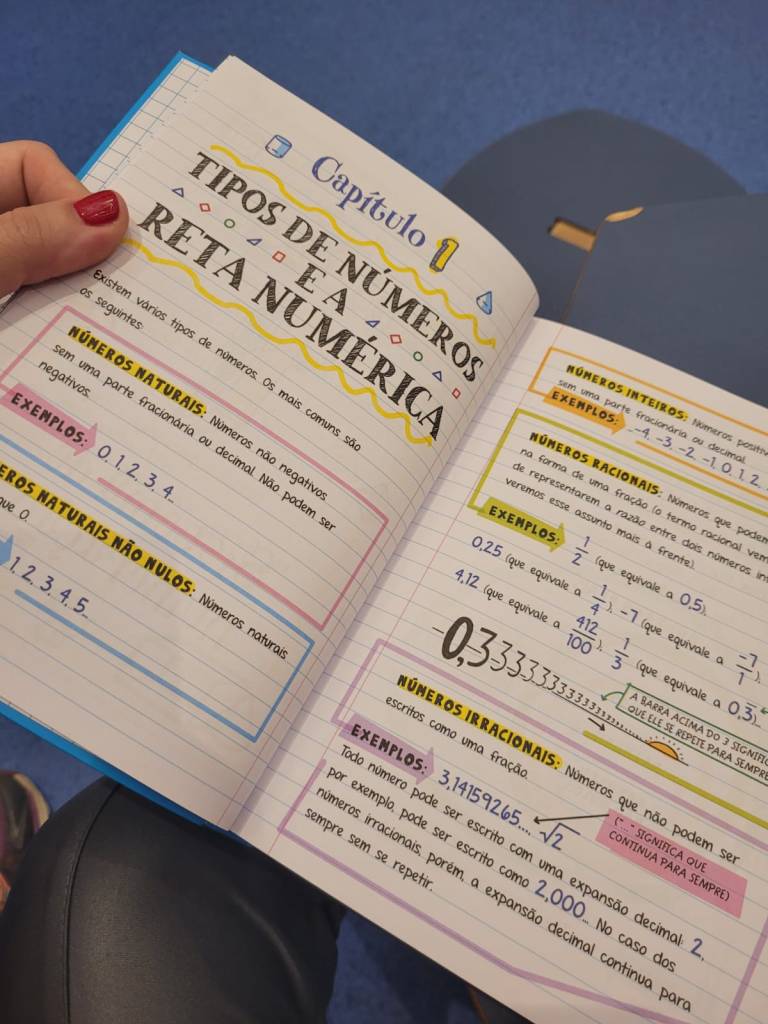 Capítulo 1
TIPOS DE NÚMEROS
E A
RETA NUMÉRICA
Existem vários tipos de números. Os mais comuns são
os seguintes:
NÚMEROS NATURAIS: Números não negativos
sem uma parte fracionária ou decimal. Não podem ser
negativos.
EXEMPLOS: 0, 1, 2, 3, 4...
NATURAIS NÃO NULOS: Números naturais
que 0.
1, 2, 3, 4, 5...
NÚMEROS INTEIROS: Números
sem uma parte fracionária ou decimal.
EXEMPLOS: ...-4, -3, -2, -1, 0, 1, 2,
NÚMEROS RACIONAIS: Números que podem
na forma de uma fração (o termo racional vem
de representarem a razão entre dois números
veremos esse assunto mais à frente).
EXEMPLOS: 1/2 (que equivale a 0,5),
0,25 (que equivale a 1/4), -7 (que equivale a -7/1),
4,12 (que equivale a 412/100), 1/3 (que equivale a 0,3̅).
0,33333333333333333
A BARRA ACIMA DO 3
QUE ELE SE REPETE PARA SEMPRE
NÚMEROS IRRACIONAIS: Números que não podem ser
escritos como uma fração.
EXEMPLOS: 3,14159265..., √2
("..." SIGNIFICA QUE
CONTINUA PARA SEMPRE)
Todo número pode ser escrito com uma expansão decimal: 2,
por exemplo, pode ser escrito como 2,000... No caso dos
números irracionais, porém, a expansão decimal continua para
sempre sem se repetir.